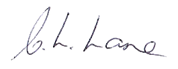 G. L. Lane